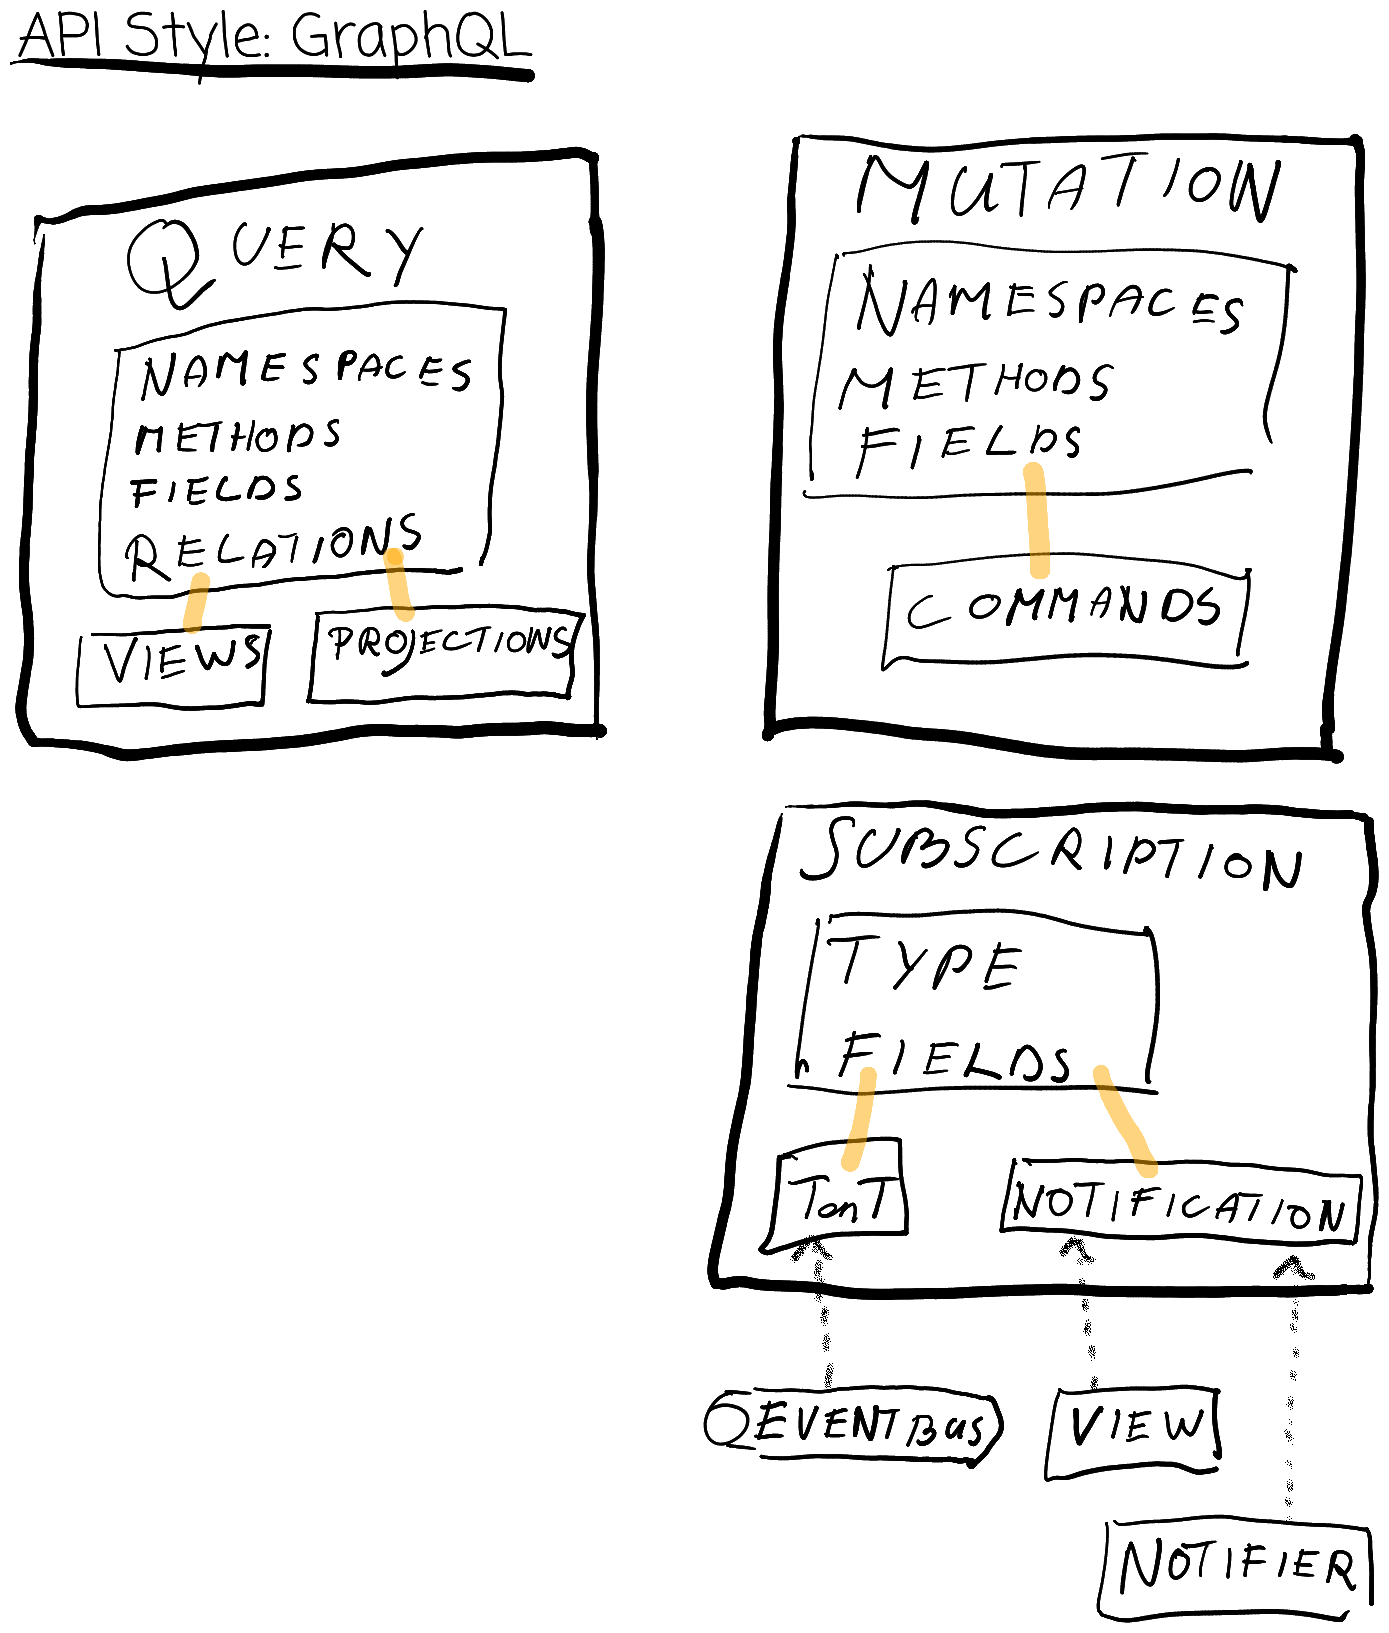 API Style: GraphQL
QUERY
NAMESPACES
METHODS
FIELDS
RELATIONS
VIEWS
PROJECTIONS
MUTATION
NAMESPACES
METHODS
FIELDS
COMMANDS
SUBSCRIPTION
TYPE
FIELDS
TonT
NOTIFICATION
EVENTBUS
VIEW
NOTIFIER